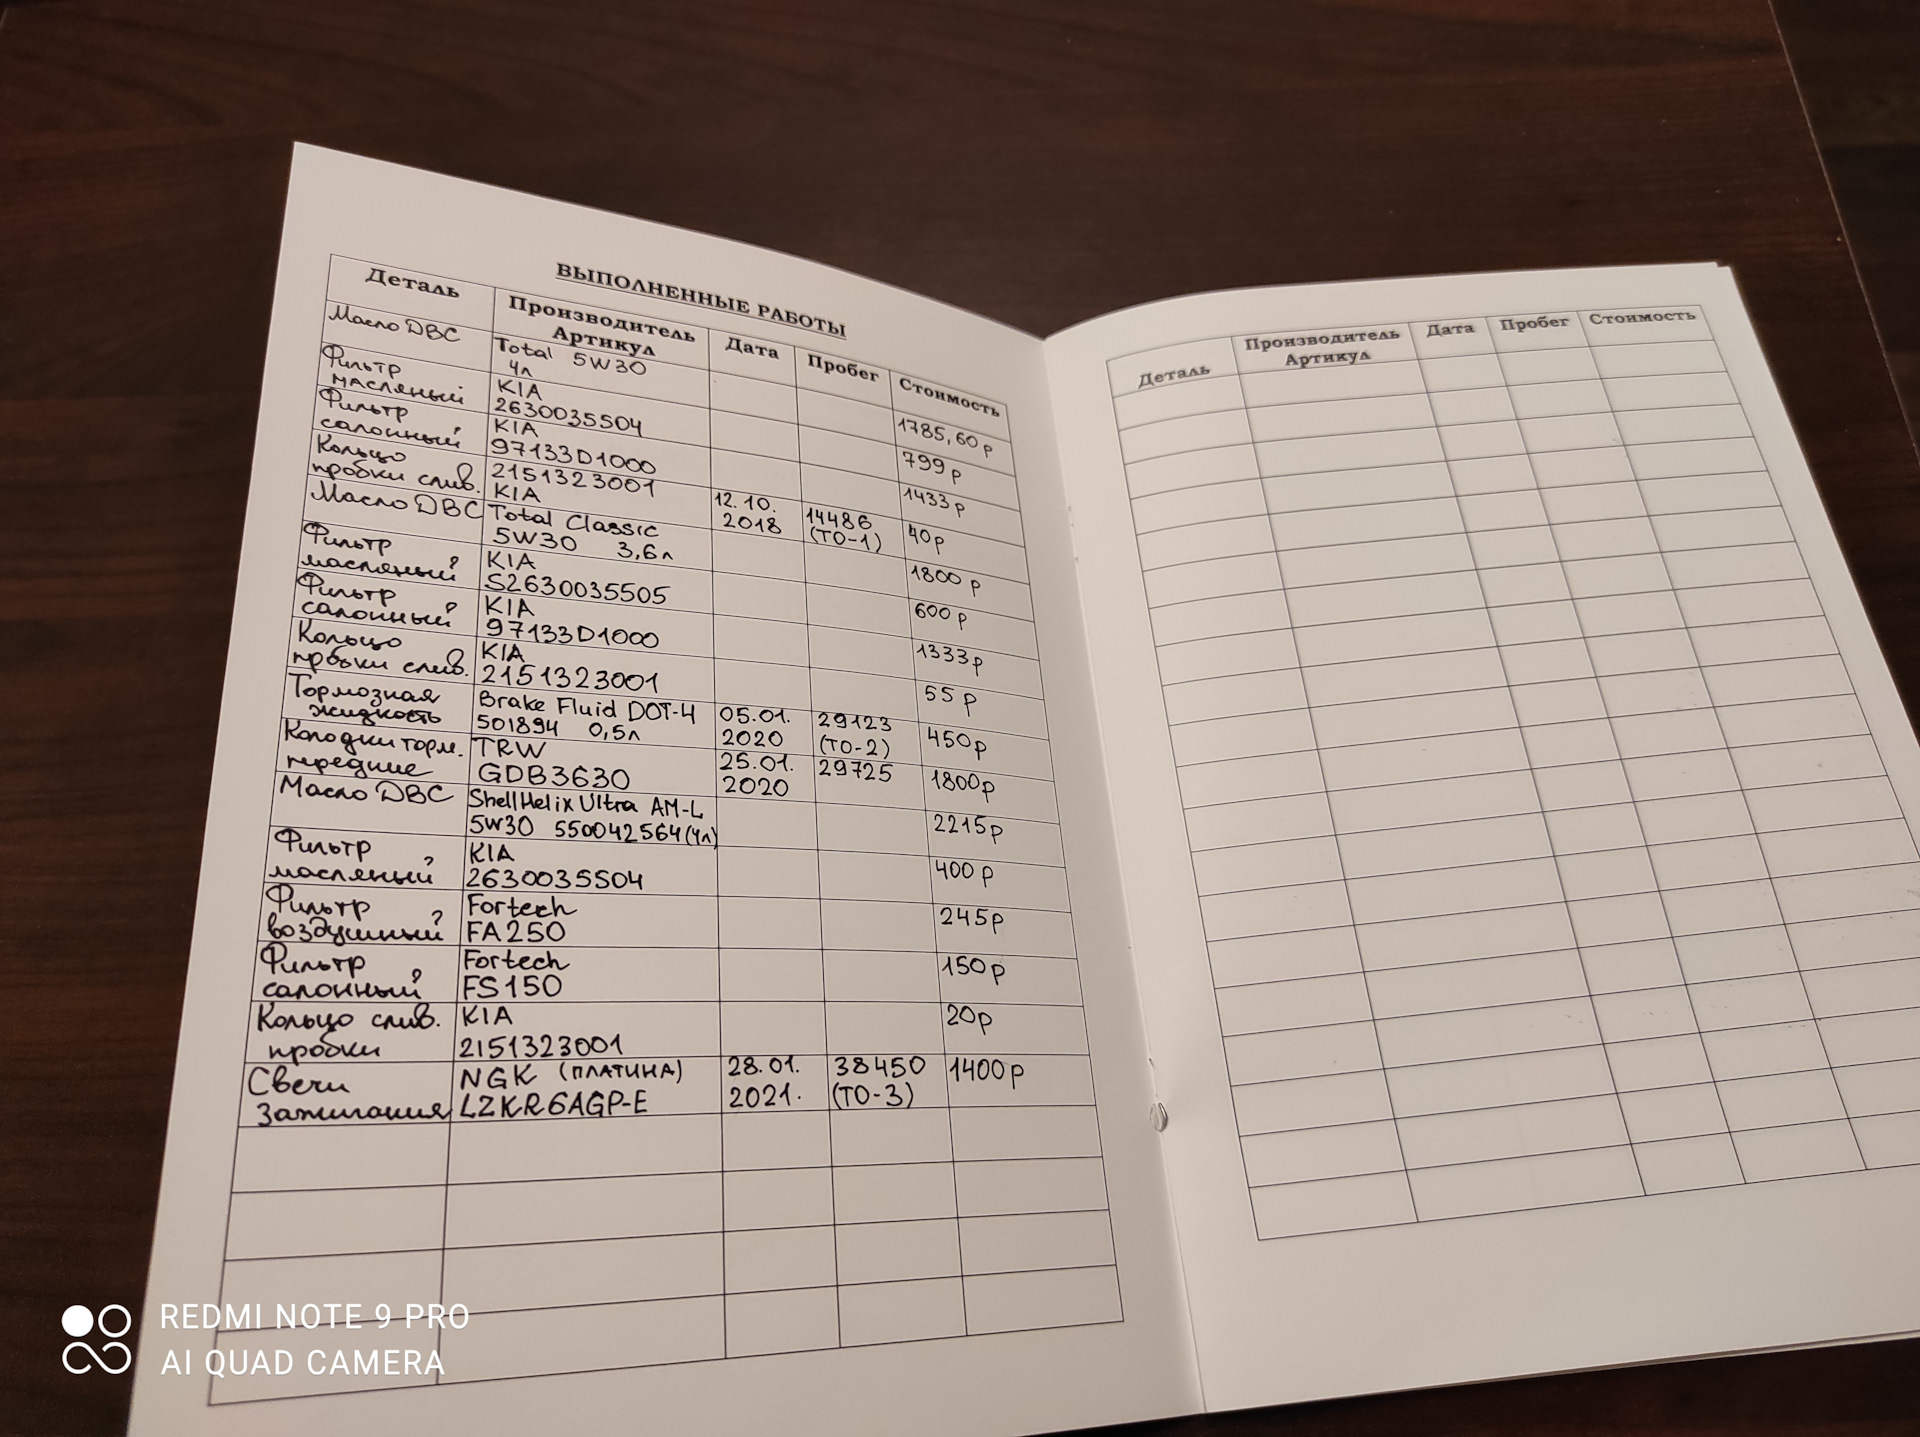 ВЫПОЛНЕННЫЕ РАБОТЫ
Деталь Производитель Артикул Дата Пробег Стоимость
Масло ДВС Total 5W30 4л 1785,60 р
Фильтр масляный KIA 2630035504 799 р
Фильтр салонный KIA 97133D1000 1433 р
Кольцо пробки слив. 2151323001 KIA 12.10.2018 14486 (ТО-1) 40р
Масло ДВС Total Classic 5W30 3,6л 1800 р
Фильтр масляный KIA S2630035505 600 р
Фильтр салонный KIA 97133D1000 1333 р
Кольцо пробки слив. KIA 2151323001 55 р
Тормозная жидкость Brake Fluid DOT-4 501894 0,5л 05.01.2020 29123 (ТО-2) 450р
Колодки торм. передние TRW GDB3630 25.01.2020 29725 1800р
Масло ДВС Shell Helix Ultra AM-L 5W30 550042564(4л) 2215р
Фильтр масляный KIA 2630035504 400 р
Фильтр воздушный Fortech FA250 245р
Фильтр салонный Fortech FS150 150р
Кольцо слив. пробки KIA 2151323001 20р
Свечи зажигания NGK (ПЛАТИНА) LZKR6AGP-E 28.01.2021. 38450 (ТО-3) 1400р
Деталь Производитель Артикул Дата Пробег Стоимость
REDMI NOTE 9 PRO
AI QUAD CAMERA